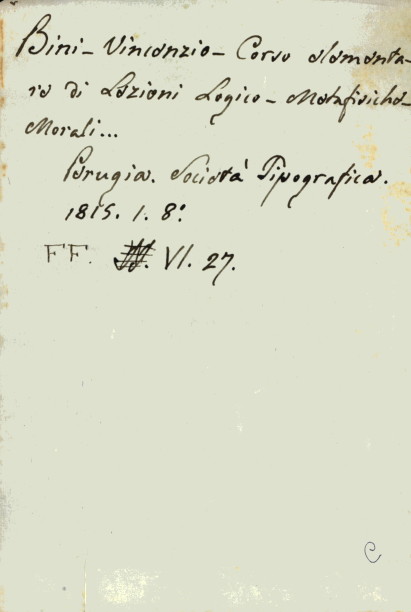 Bini - Vincenzio - Corso elementa-
re di Lezioni Logico - Metafisiche -
Morali...
Perugia. Società Tipografica.
1815. 1. 8º.
FF. VI. 27.
C